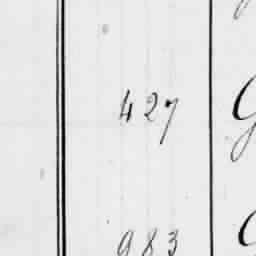 427
983